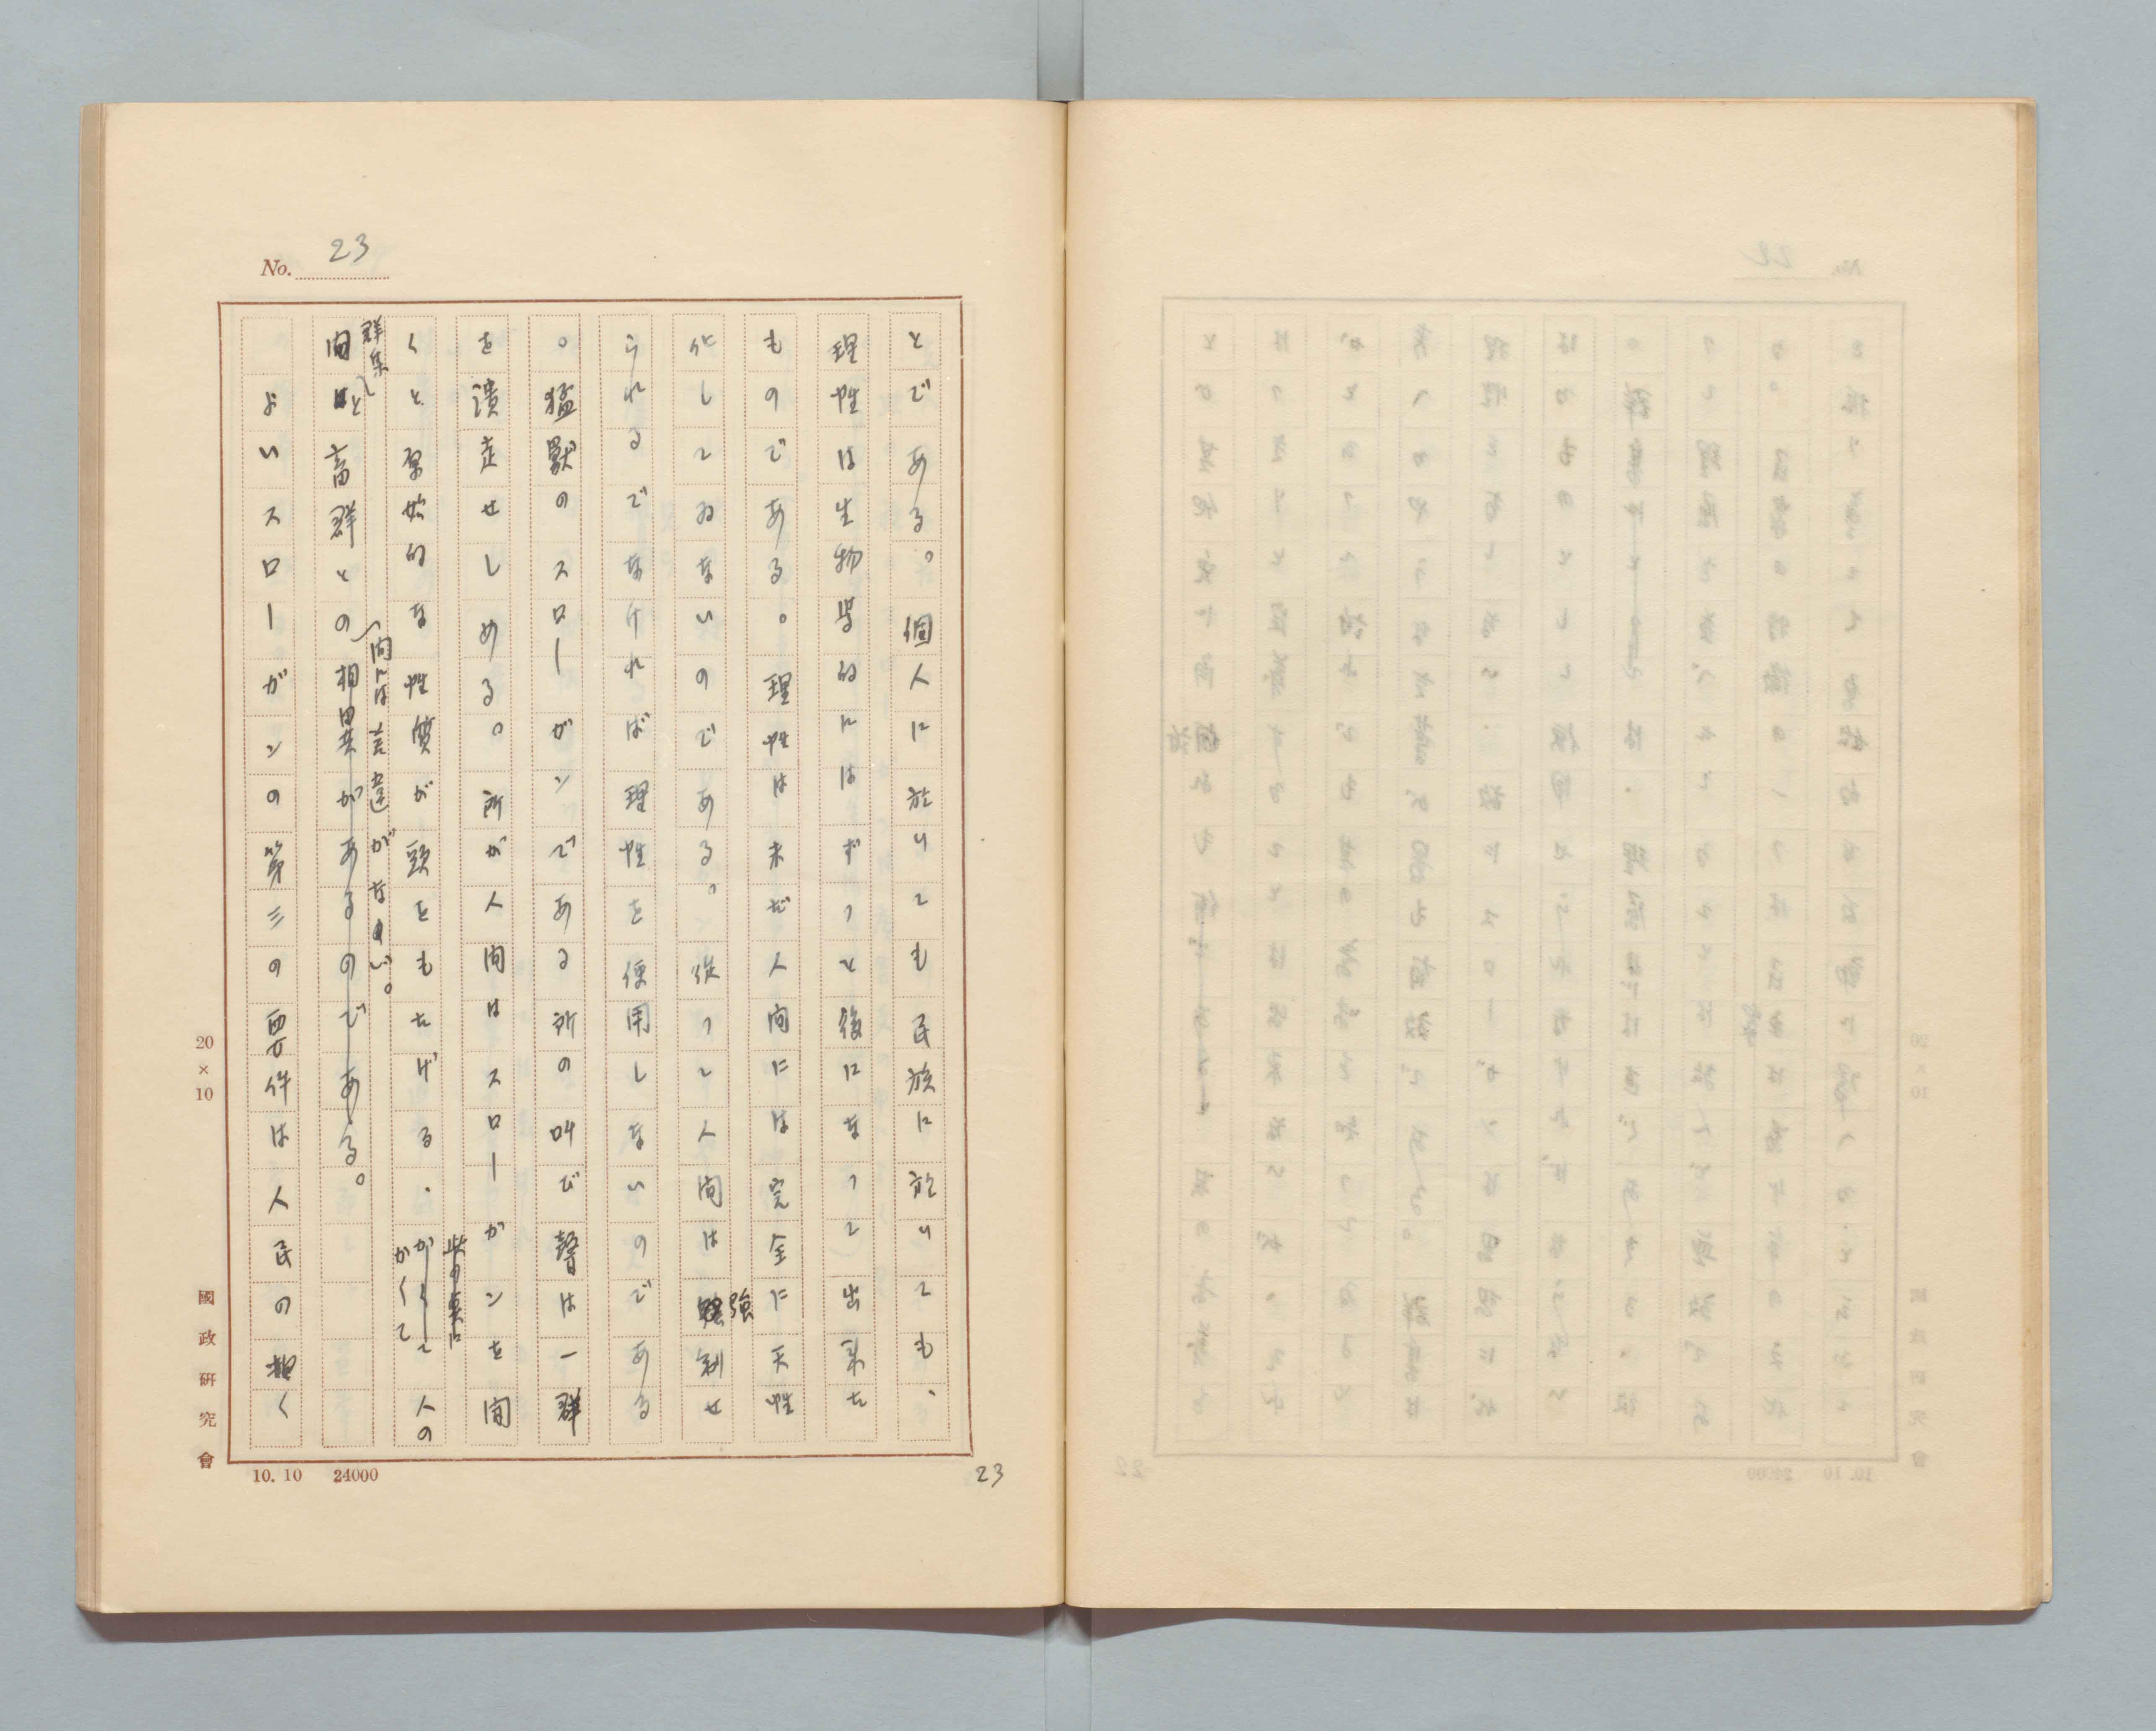 No. 23
とである。個人に於いても民族に於いても、
理性は生物学的にはずっと後になって出来た
ものである。理性は未だ人間には完全に天性
化してゐないのである。従って人間は強制せ
られるでなければ理性を使用しないのである
。猛獣のスローガンである所の叫び聲は一群
を潰走せしめる。所が人間はスローガンを聞
くと原始的な性質が頭をもたげる.かくて人の
此の裏に
かくして
群集し
間と畜群との間には差違がない。
相異があるのである。
よいスローガンの第三の要件は人民の軽く
20×10
國政研究會
10.10 24000
23